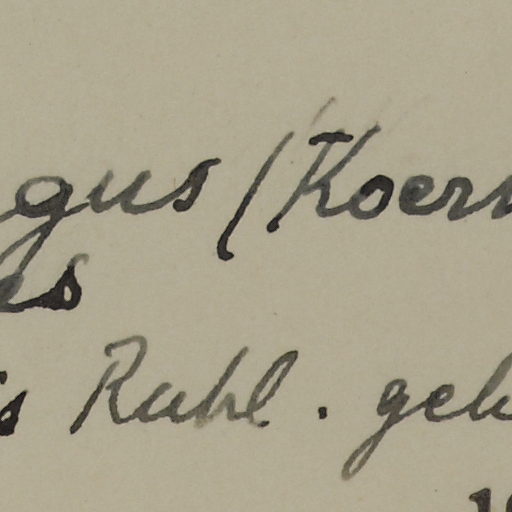 gus (Koern
es
is Ruhl. geb